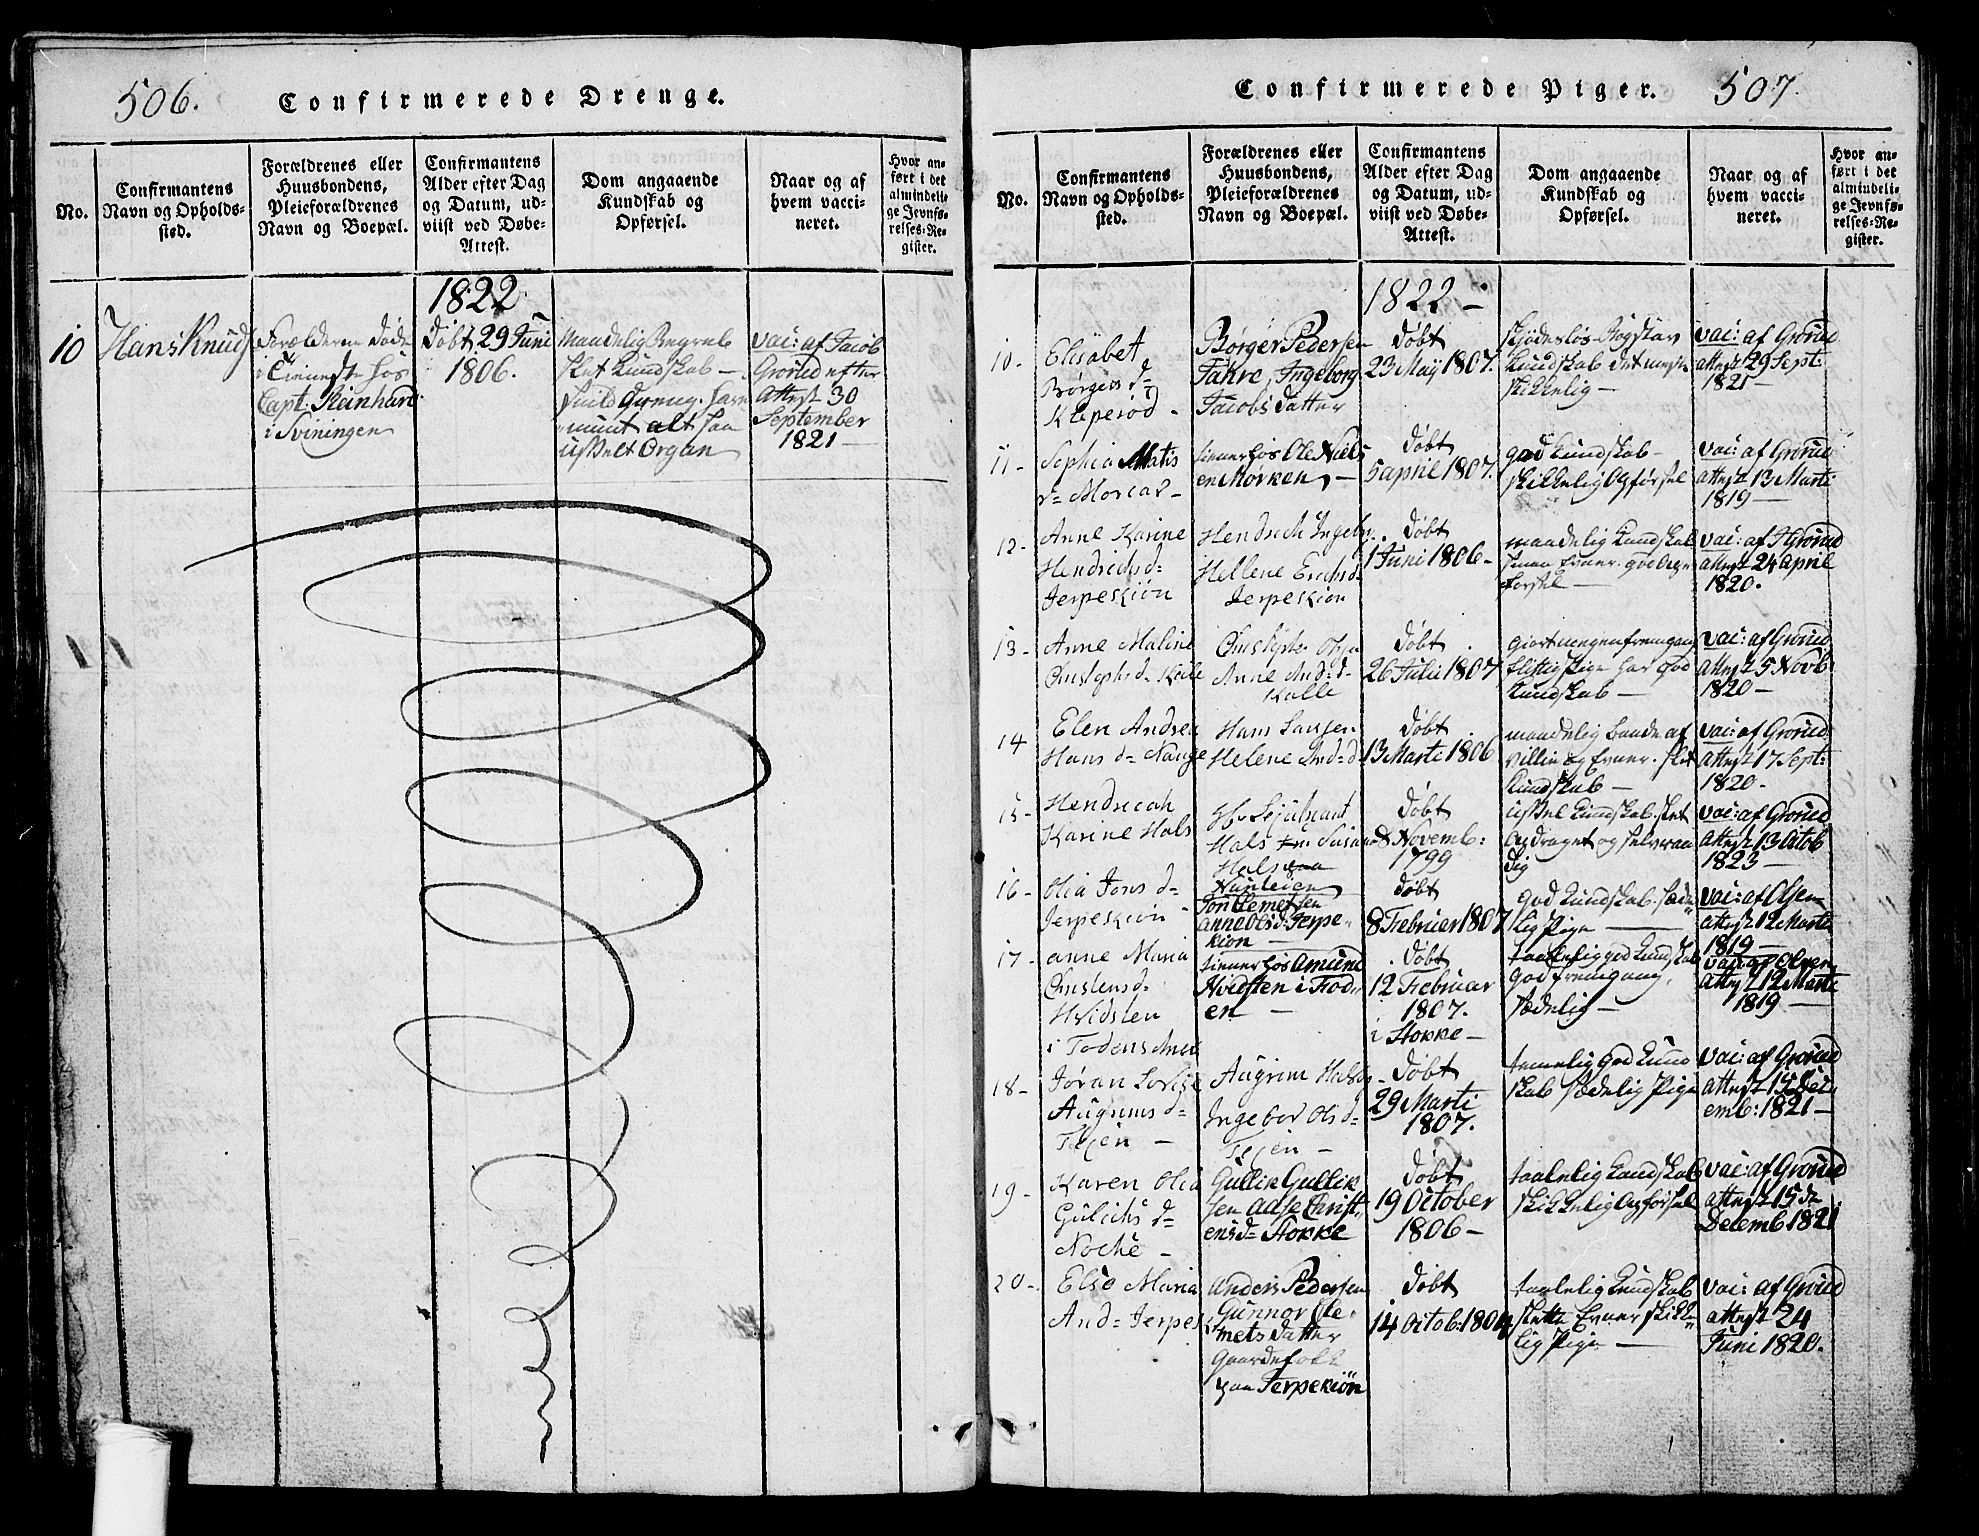 506.
Confirmerede Drenge.
No.
Confirmantens
Navn og Opholds-
sted.
Forældrenes eller
Huusbondens,
Pleieforældrenes
Navn og Boepæl.
Confirmantens
Alder efter Dag
og Datum, ud-
viist ved Døbe-
Attest.
Dom angaaende
Kundskab og
Opførsel.
Naar og af
hvem vacci-
neret.
Hvor an-
ført i det
almindeli-
ge Jevnfø-
relses-Re-
gister.
1822
10
Hans Knuds
Forælderne døde
i Tieneste hos
Capt: Reinhard
i Sviningen
døbt 29 Juni
1806.
Maadelig Begreb
slet Kundskab
alt saa
uslelt Organ
vac: af Jacob
Grorud efter
Attest 30
September
1821
507.
Confirmerede Piger.
No.
Confirmantens
Navn og Opholds-
sted.
Forældrenes eller
Huusbondens,
Pleieforældrenes
Navn og Boepæl.
Confirmantens
Alder efter Dag
og Datum, ud-
viist ved Døbe-
Attest.
Dom angaaende
Kundskab og
Opførsel.
Naar og af
hvem vacci-
neret.
Hvor an-
ført i det
almindeli-
ge Jevnfø-
relses-Re-
gister.
1822 -
10 -
Elisabet
Børgers d=
Kleperød -
Børger Pedersen
Fahre, Ingeborg
Jacobs datter
døbt
23 May 1807.
skjødesløs
Kundskab
skikkelig -
vac: af Grorud
attest 29 Sept:
1821 -
11 -
Sophia Matis
tiener hos Ole Niels
en Mørken, -
døbt
5 april 1807.
god Kundskab -
skikkelig Opførsel
vac: af Grorud
attest 13 Marti
1819 -
12 -
Anne Karine
Hendrichs d=
Jerpeskiøn
Hendrich Ingebr
Hellene Erichs d=
Jerpeskiøn
døbt
1 Juni 1806 -
maadelig Kundskab
smaa Evner. god Op=
førsel -
vac: af J Grorud
attest 24 april
1820.
13 -
Anne Maline
Christophs d= Kolle
Christopher
Anne And: d-
Kolle
døbt
26 Julii 1807
giort megen fremgang
flittig Pige har god
Kundskab -
vac: af Grorud
attest 5 Novb
1820 -
14
Elen Andrea
Hans d= Nauge
Hans Larsen
Helene And: d-
døbt
13 Marti 1806
maadelig baade af
Villie og Evner. slet
Kundskab -
vac: af Grorud
attest 17 Sept:
1820.
15 -
Hendricah
Karine Hals
Hals
Hals
døbt
8 Novemb:
1799
ussel Kundskab. slet
dig
vac: af Grorud
attest 13 Octob
1823 -
16 -
Olia Jons d=
Jerpeskiøn -
Jon Clemetsen
anne Ols d: Jerpe-
kiøn -
døbt
8 Februer 1807
god Kundskab. sæde=
lig Pige -
vac: af Olsen
attest 12 Marti
1819 -
17 -
anne Maria
Christens d.
Hvidsten
tiener hos Amund
Hvidsten i Fod=
en -
døbt
12 Februar
1807.
i Stokke -
taalelig god Kundskab
god fremgang,
sædelig -
vac: af Olsen
attest 12 Marti
1819 -
18 -
Jøran
Augrims d=
Texen -
Augrim
Ingebor Ols d=
Texen -
døbt
29 Marti
1807.
temmelig God Kund
skab sædelig Pige
vac: af Grorud
attest 14 Dec
emb: 1821 -
19 -
Karen Olia
Gulichs d=
Noche -
Gullik Gullik
sen Aase Christ
ens d= Stokke
døbt
19 October
1806 -
taalelig Kundskab
skikkelig Opførsel
vac: af Grorud
attest 15 de
Decemb 1821
20 -
Else Maria
And= Jerpek
Anders Pedersen
Gunnor Cle-
mets datter
Gaardefolk
paa Jerpekiøn
døbt
14 Octob: 1804
taalelig Kundskab
slette Evner skikke=
lig Pige -
vac: af Grorud
attest 24
Juni 1820.